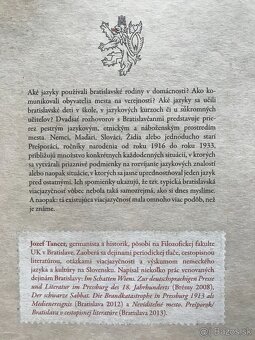 Aké jazyky používali bratislavské rodiny v domácnosti? Ako ko-
munikovali obyvatelia mesta na verejnosti? Aké jazyky sa učili
bratislavské deti v škole, v jazykových kurzoch či u súkromných
učiteľov? Dvadsať rozhovorov s Bratislavčanmi predstavuje prie-
rez pestrým jazykovým, etnickým a náboženským prostredím
mesta. Nemci, Maďari, Slováci, Židia alebo jednoducho starí
Prešporáci, ročníky narodenia od roku 1916 do roku 1933,
približujú množstvo konkrétnych každodenných situácií, v ktorých
sa vytvárali priaznivé podmienky na rozvíjanie jazykových znalostí
alebo naopak situácie, v ktorých sa jasne uprednostňoval jeden jazyk
pred ostatnými. Ich spomienky ukazujú, že tzv. typická bratislavská
viacjazyčnosť vôbec nebola taká samozrejmá, ako si dnes myslíme.
A naopak: tá existujúca viacjazyčnosť mala omnoho viac podôb, než
je známe.
Jozef Tancer, germanista a historik, pôsobí na Filozofickej fakulte
UK v Bratislave. Zaoberá sa dejinami periodickej tlače, cestopisnou
literatúrou, otázkami viacjazyčnosti a výskumom nemeckého
jazyka a kultúry na Slovensku. Napísal niekoľko prác venovaných
dejinám Bratislavy: Im Schatten Wiens. Zur deutschsprachigen Presse
und Literatur im Pressburg des 18. Jahrhunderts (Brémy 2008),
Der schwarze Sabbat. Die Brandkatastrophe in Pressburg 1913 als
Medienereignis (Bratislava 2012) a Neviditeľné mesto. Prešporok/
Bratislava v cestopisnej literatúre (Bratislava 2013).